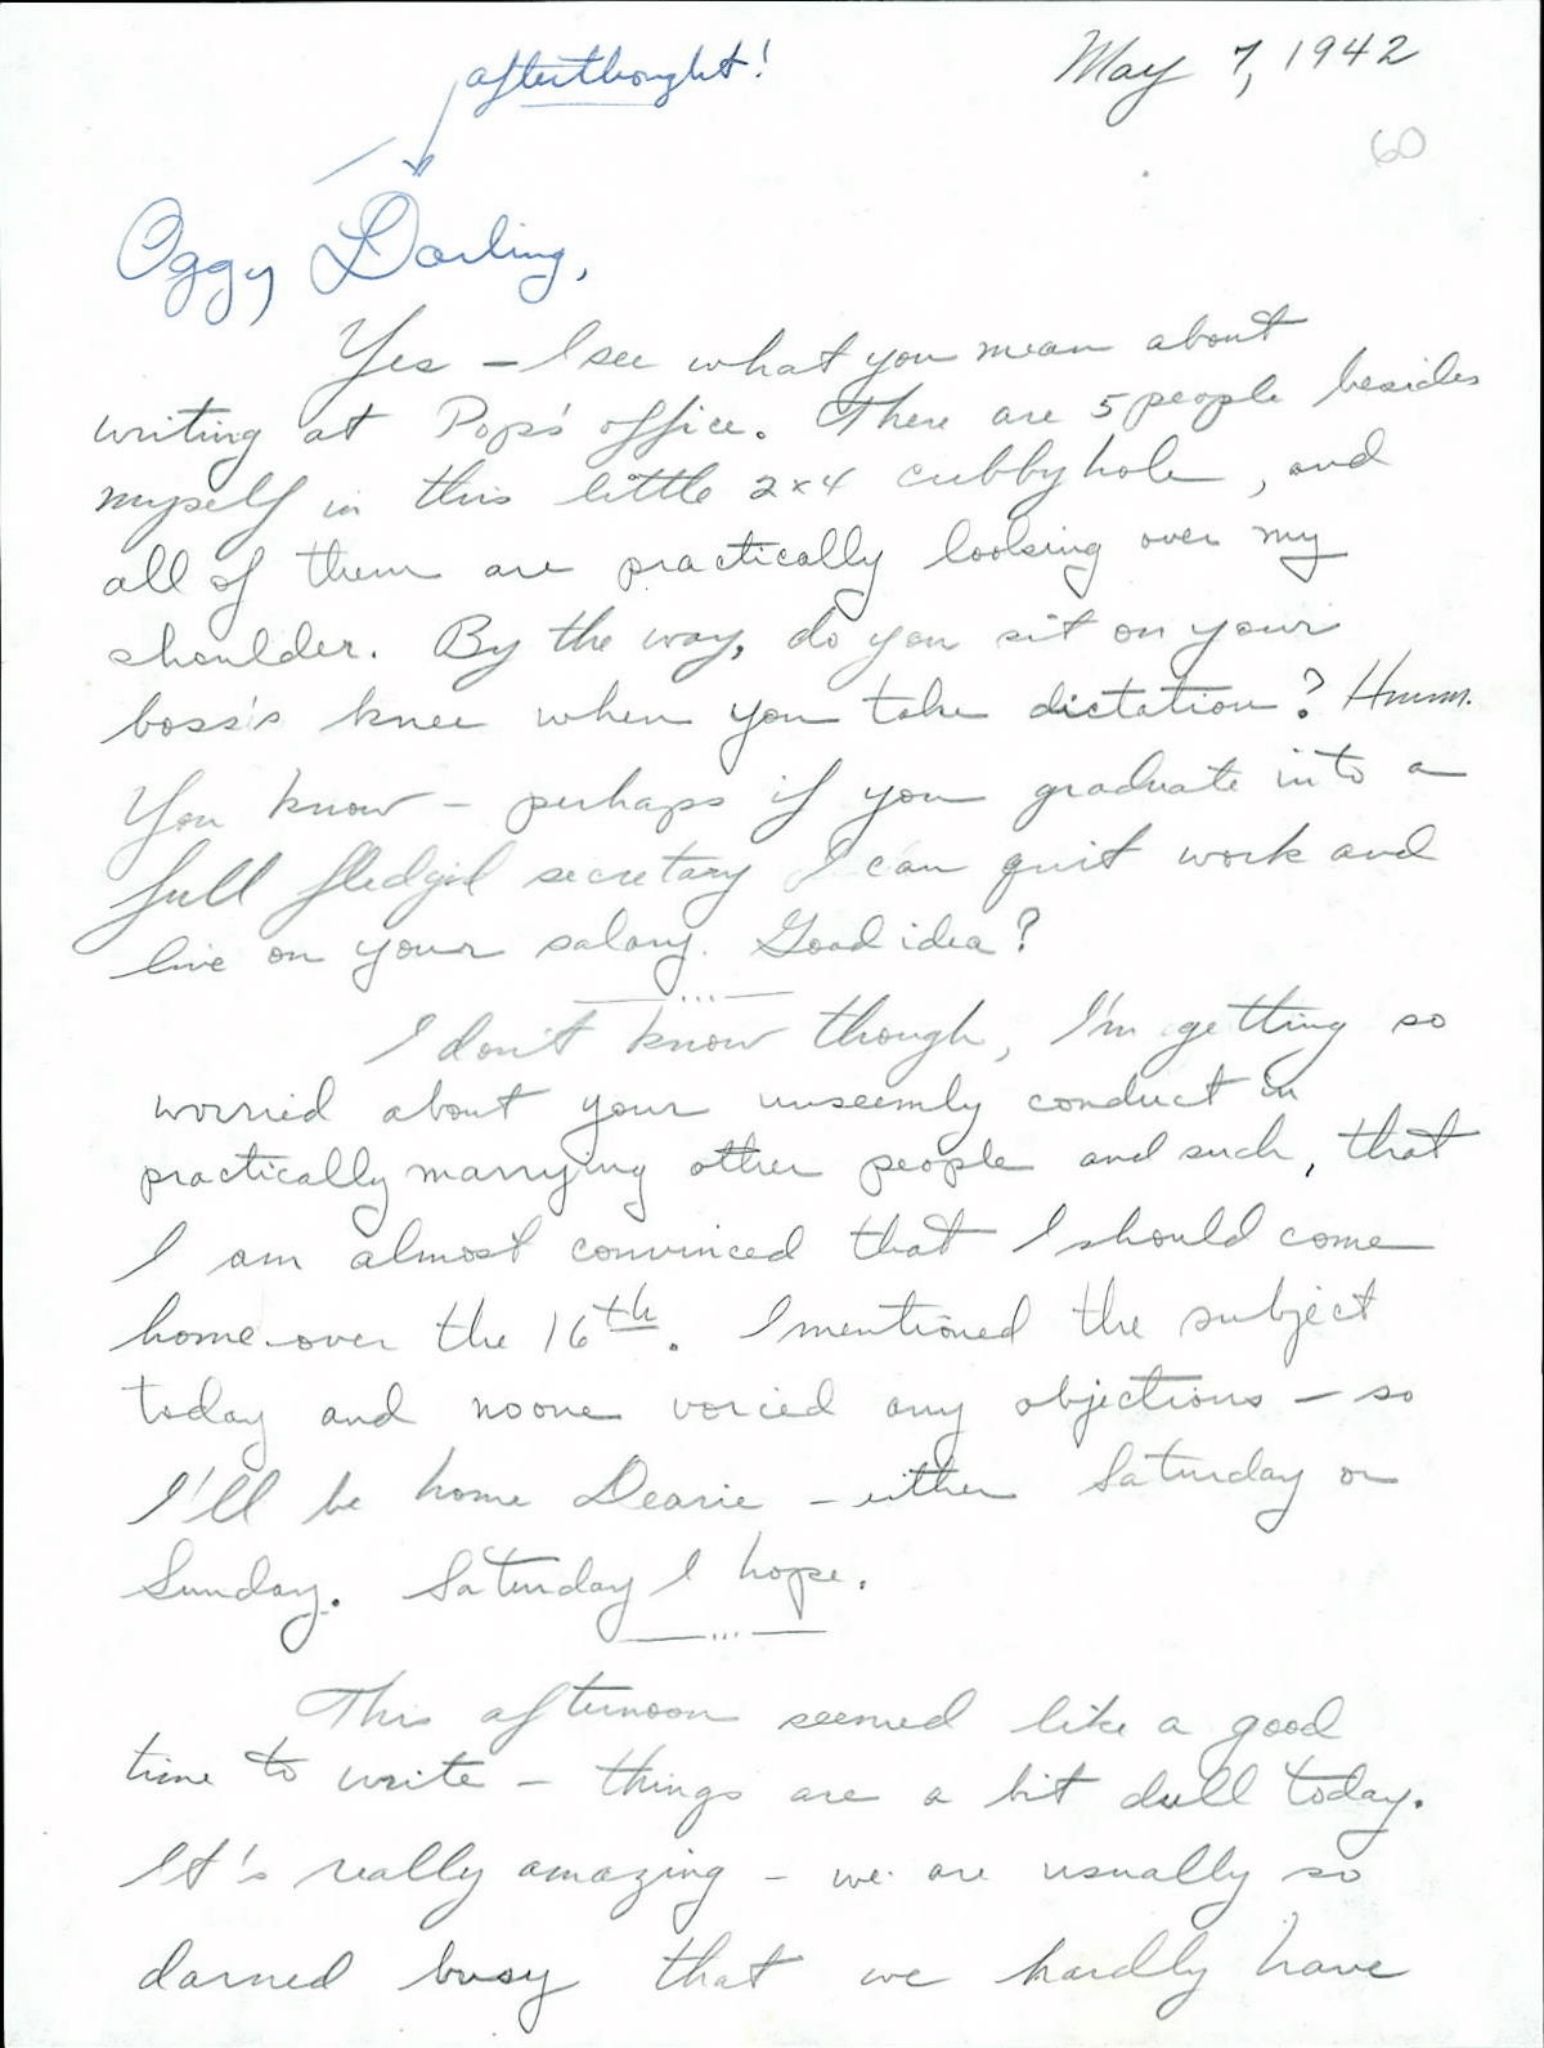 afterthought!
May 7, 1942
60
Oggy Darling,
Yes - I see what you mean about
writing at Pop's office. There are 5 people besides
myself in this little 2x4 cubbyhole, and
all of them are practically looking over my
shoulder. By the way, do you sit on your
boss's knee when you take dictation? Hmmm.
You know - perhaps if you graduate into a
full fledged secretary I can quit work and
live on your salary. Good idea?
— ... —
I don't know though, I'm getting so
worried about your unseemly conduct in
practically marrying other people and such, that
I am almost convinced that I should come
home over the 16th. I mentioned the subject
today and noone voiced any objections - so
I'll be home Dearie - either Saturday or
Sunday. Saturday I hope.
— ... —
This afternoon seemed like a good
time to write - things are a bit dull today.
It's really amazing - we are usually so
darned busy that we hardly have